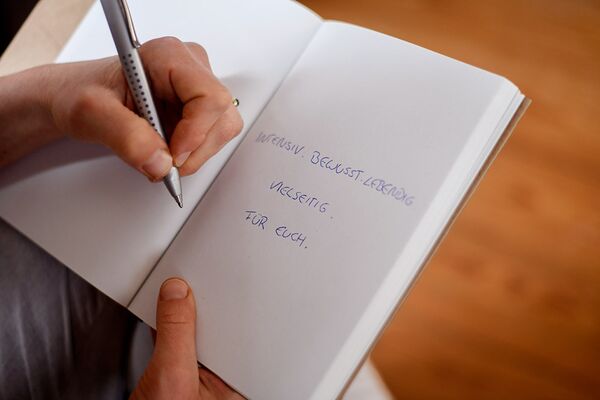 INTENSIV. BEWUSST. LEBENDIG
VIELSEITIG.
FÜR EUCH.